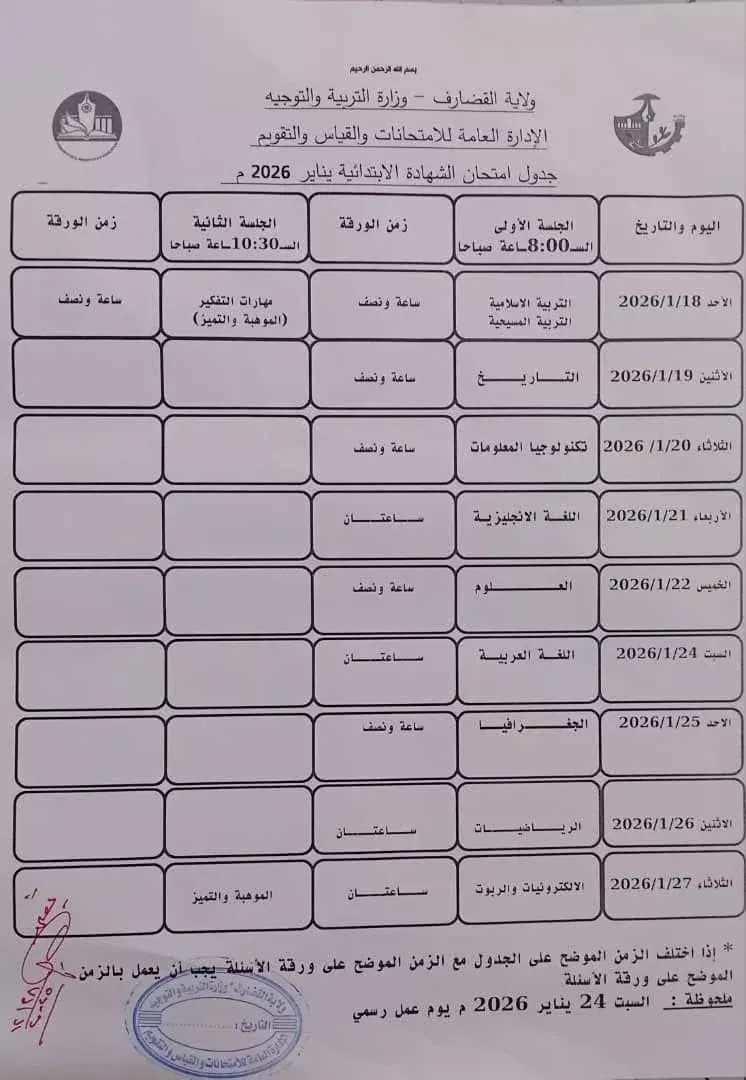 بسم الله الرحمن الرحيم
ولاية القضارف – وزارة التربية والتوجيه
الإدارة العامة للامتحانات والقياس والتقويم
جدول امتحان الشهادة الابتدائية يناير 2026 م
اليوم والتاريخ | الجلسة الأولى الســ8:00ــاعة صباحا | زمن الورقة | الجلسة الثانية الســ10:30ــاعة صباحا | زمن الورقة
الاحد 2026/1/18 | التربية الاسلامية التربية المسيحية | ساعة ونصف | مهارات التفكير (الموهبة والتميز) | ساعة ونصف
الاثنين 2026/1/19 | التــاريــــخ | ساعة ونصف
الثلاثاء 2026 /1/20 | تكنولوجيا المعلومات | ساعة ونصف
الأربعاء 2026/1/21 | اللغــة الانجليزيـة | ســـاعتـــــان
الخميس 2026/1/22 | العــــــــلوم | ساعة ونصف
السبت 2026/1/24 | اللغــة العربيــة | ســـاعتـــــان
الاحد 2026/1/25 | الجغـــرافيـــا | ساعة ونصف
الاثنين 2026/1/26 | الريـــاضيـــات | ســـاعتـــــان
الثلاثاء 2026/1/27 | الالكترونيات والربوت | ســـاعتـــــان | الموهبة والتميز
* إذا اختلف الزمن الموضح على الجدول مع الزمن الموضح على ورقة الأسئلة يجب أن يعمل بالزمن
الموضح على ورقة الأسئلة
ملحوظة : السبت 24 يناير 2026 م يوم عمل رسمي
ولاية القضارف* وزارة التربية والتوجيه
التاريخ : ....................
الإدارة العامة للامتحانات والقياس والتقويم